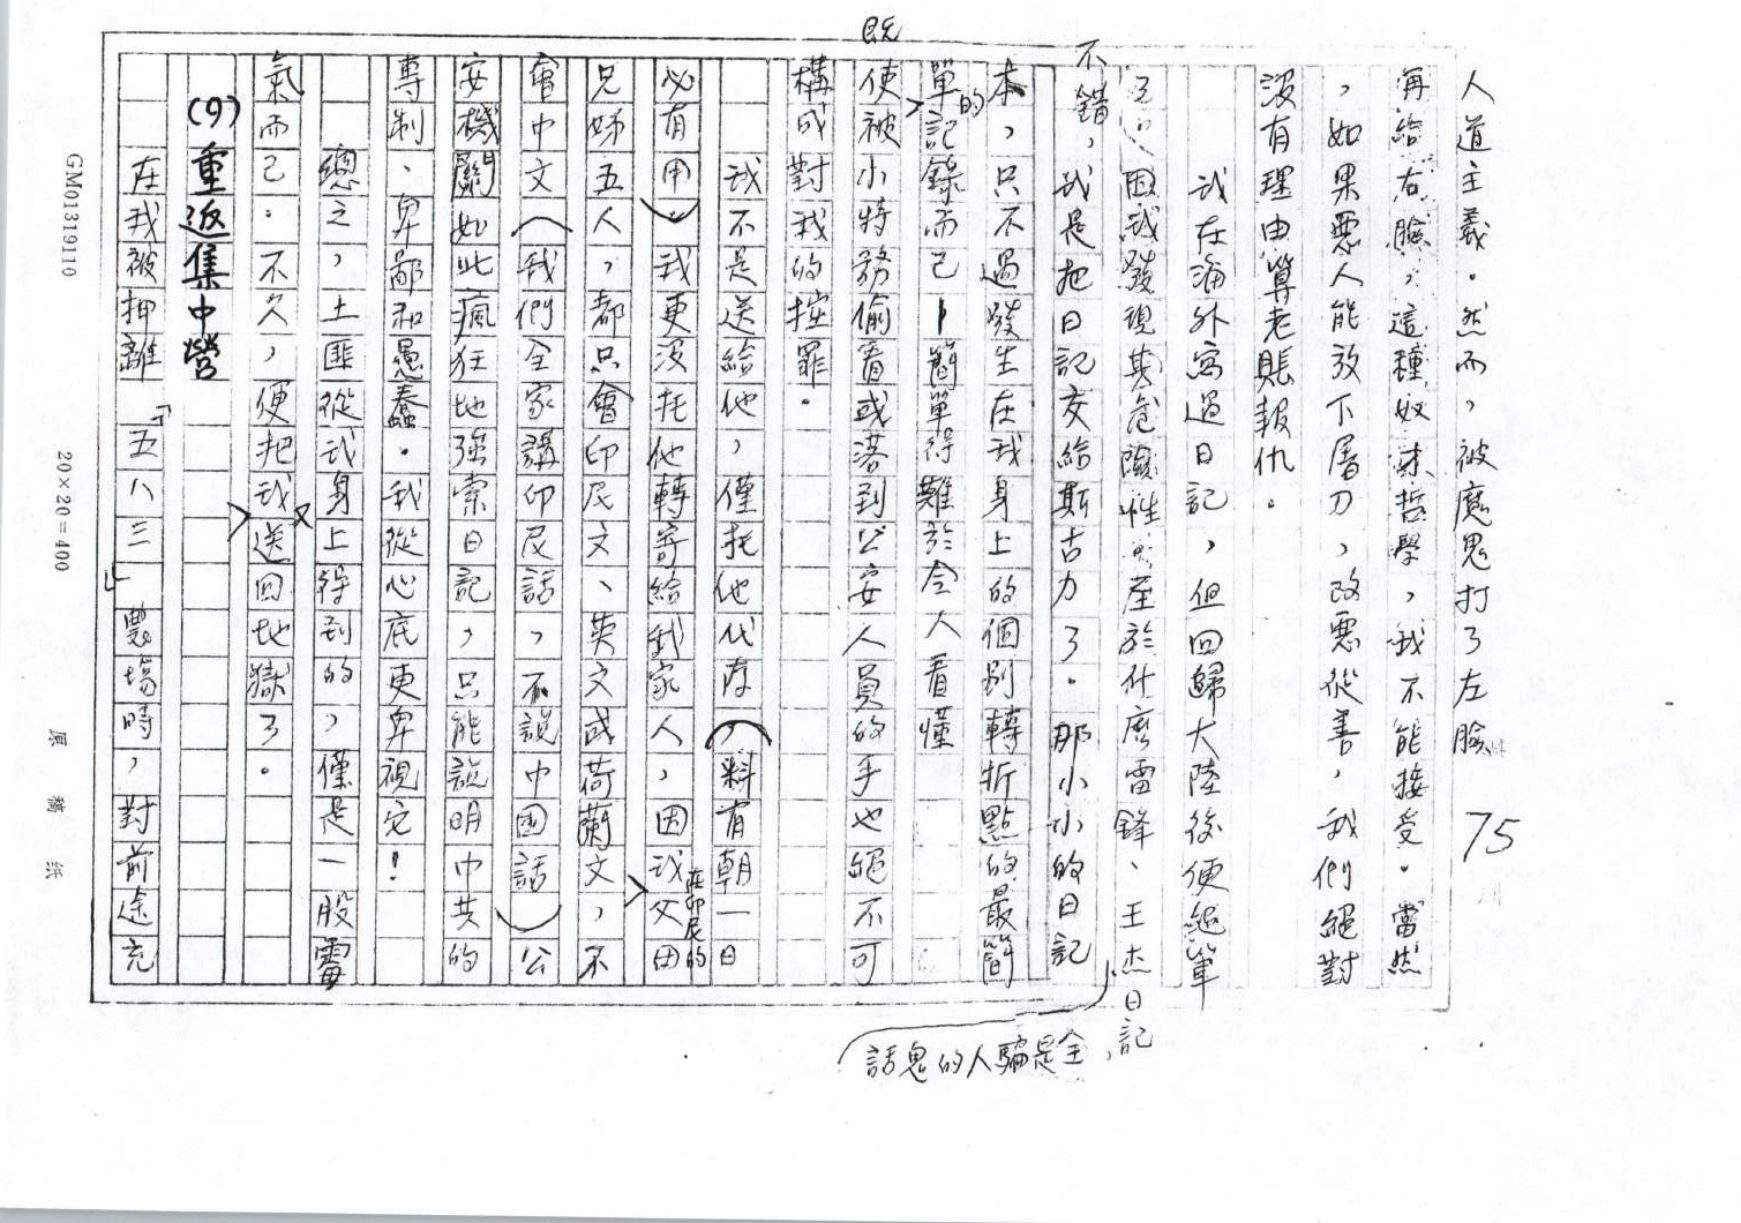 人道主義。然而,被魔鬼打了左臉
再給右臉,這種奴才哲學,我不能接受。當然
,如果惡人能放下屠刀,改惡從善,我們絕對
沒有理由算老賬報仇。
我在海外寫過日記,但回歸大陸後便絕筆
了,因我發現其危險性。至於什麼雷鋒、王杰日記
,全是騙人的鬼話
不錯,我是把日記交給斯古力了。那小小的日記
本,只不過發生在我身上的個別轉折點的最簡
單的記錄而己——簡單得難於令人看懂
既
使被小特務偷看或落到公安人員的手也絕不可
構成對我的控罪。
我不是送給他,僅托他代存(料有朝一日
必有用)我更沒托他轉寄給我家人,因我父母
在印尼的
兄姊五人,都只會印尼文、英文或荷蘭文,不
會中文(我們全家講印尼話,不說中國話)公
安機關如此瘋狂地強索日記,只能說明中共的
專制、卑鄙和愚蠢。我從心底更卑視它!
總之,土匪從我身上得到的,僅是一股霉
氣而己。不久,便把我送回地獄了。
(9)重返集中營
在我被押離「五八三」農場時,對前途充
75
GM01319110
20×20=400
原稿紙